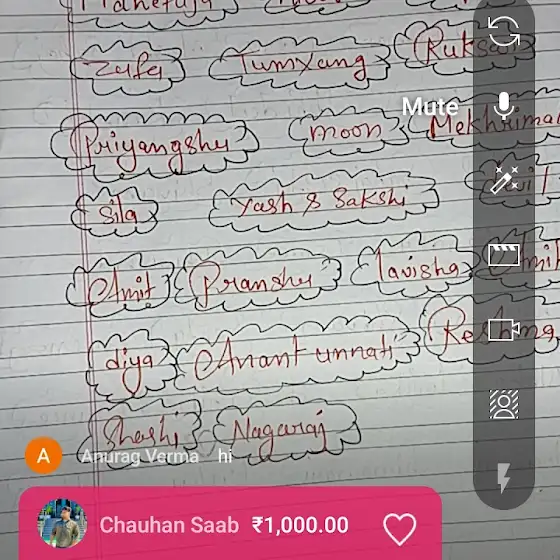 Zufa Tumyang Ruksa
Mute
Priyangshu moon Mekhrima
Sila Yash & Sakshi
Amit Pranshu Lavisha Amit
diya Anant unnati Reshma
Shashi Nagaraj
A Anurag Verma hi
Chauhan Saab ₹1,000.00